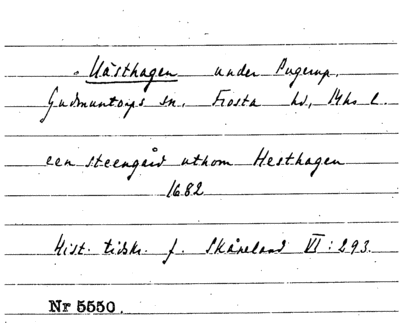 Hästhagen under Pugerup.
Gudmuntorps sn. Frosta hd., Mhs l.
een steengård uthom Hesthagen
1682
Hist. tidskr. f. Skåneland VI: 293.
Nr 5550.